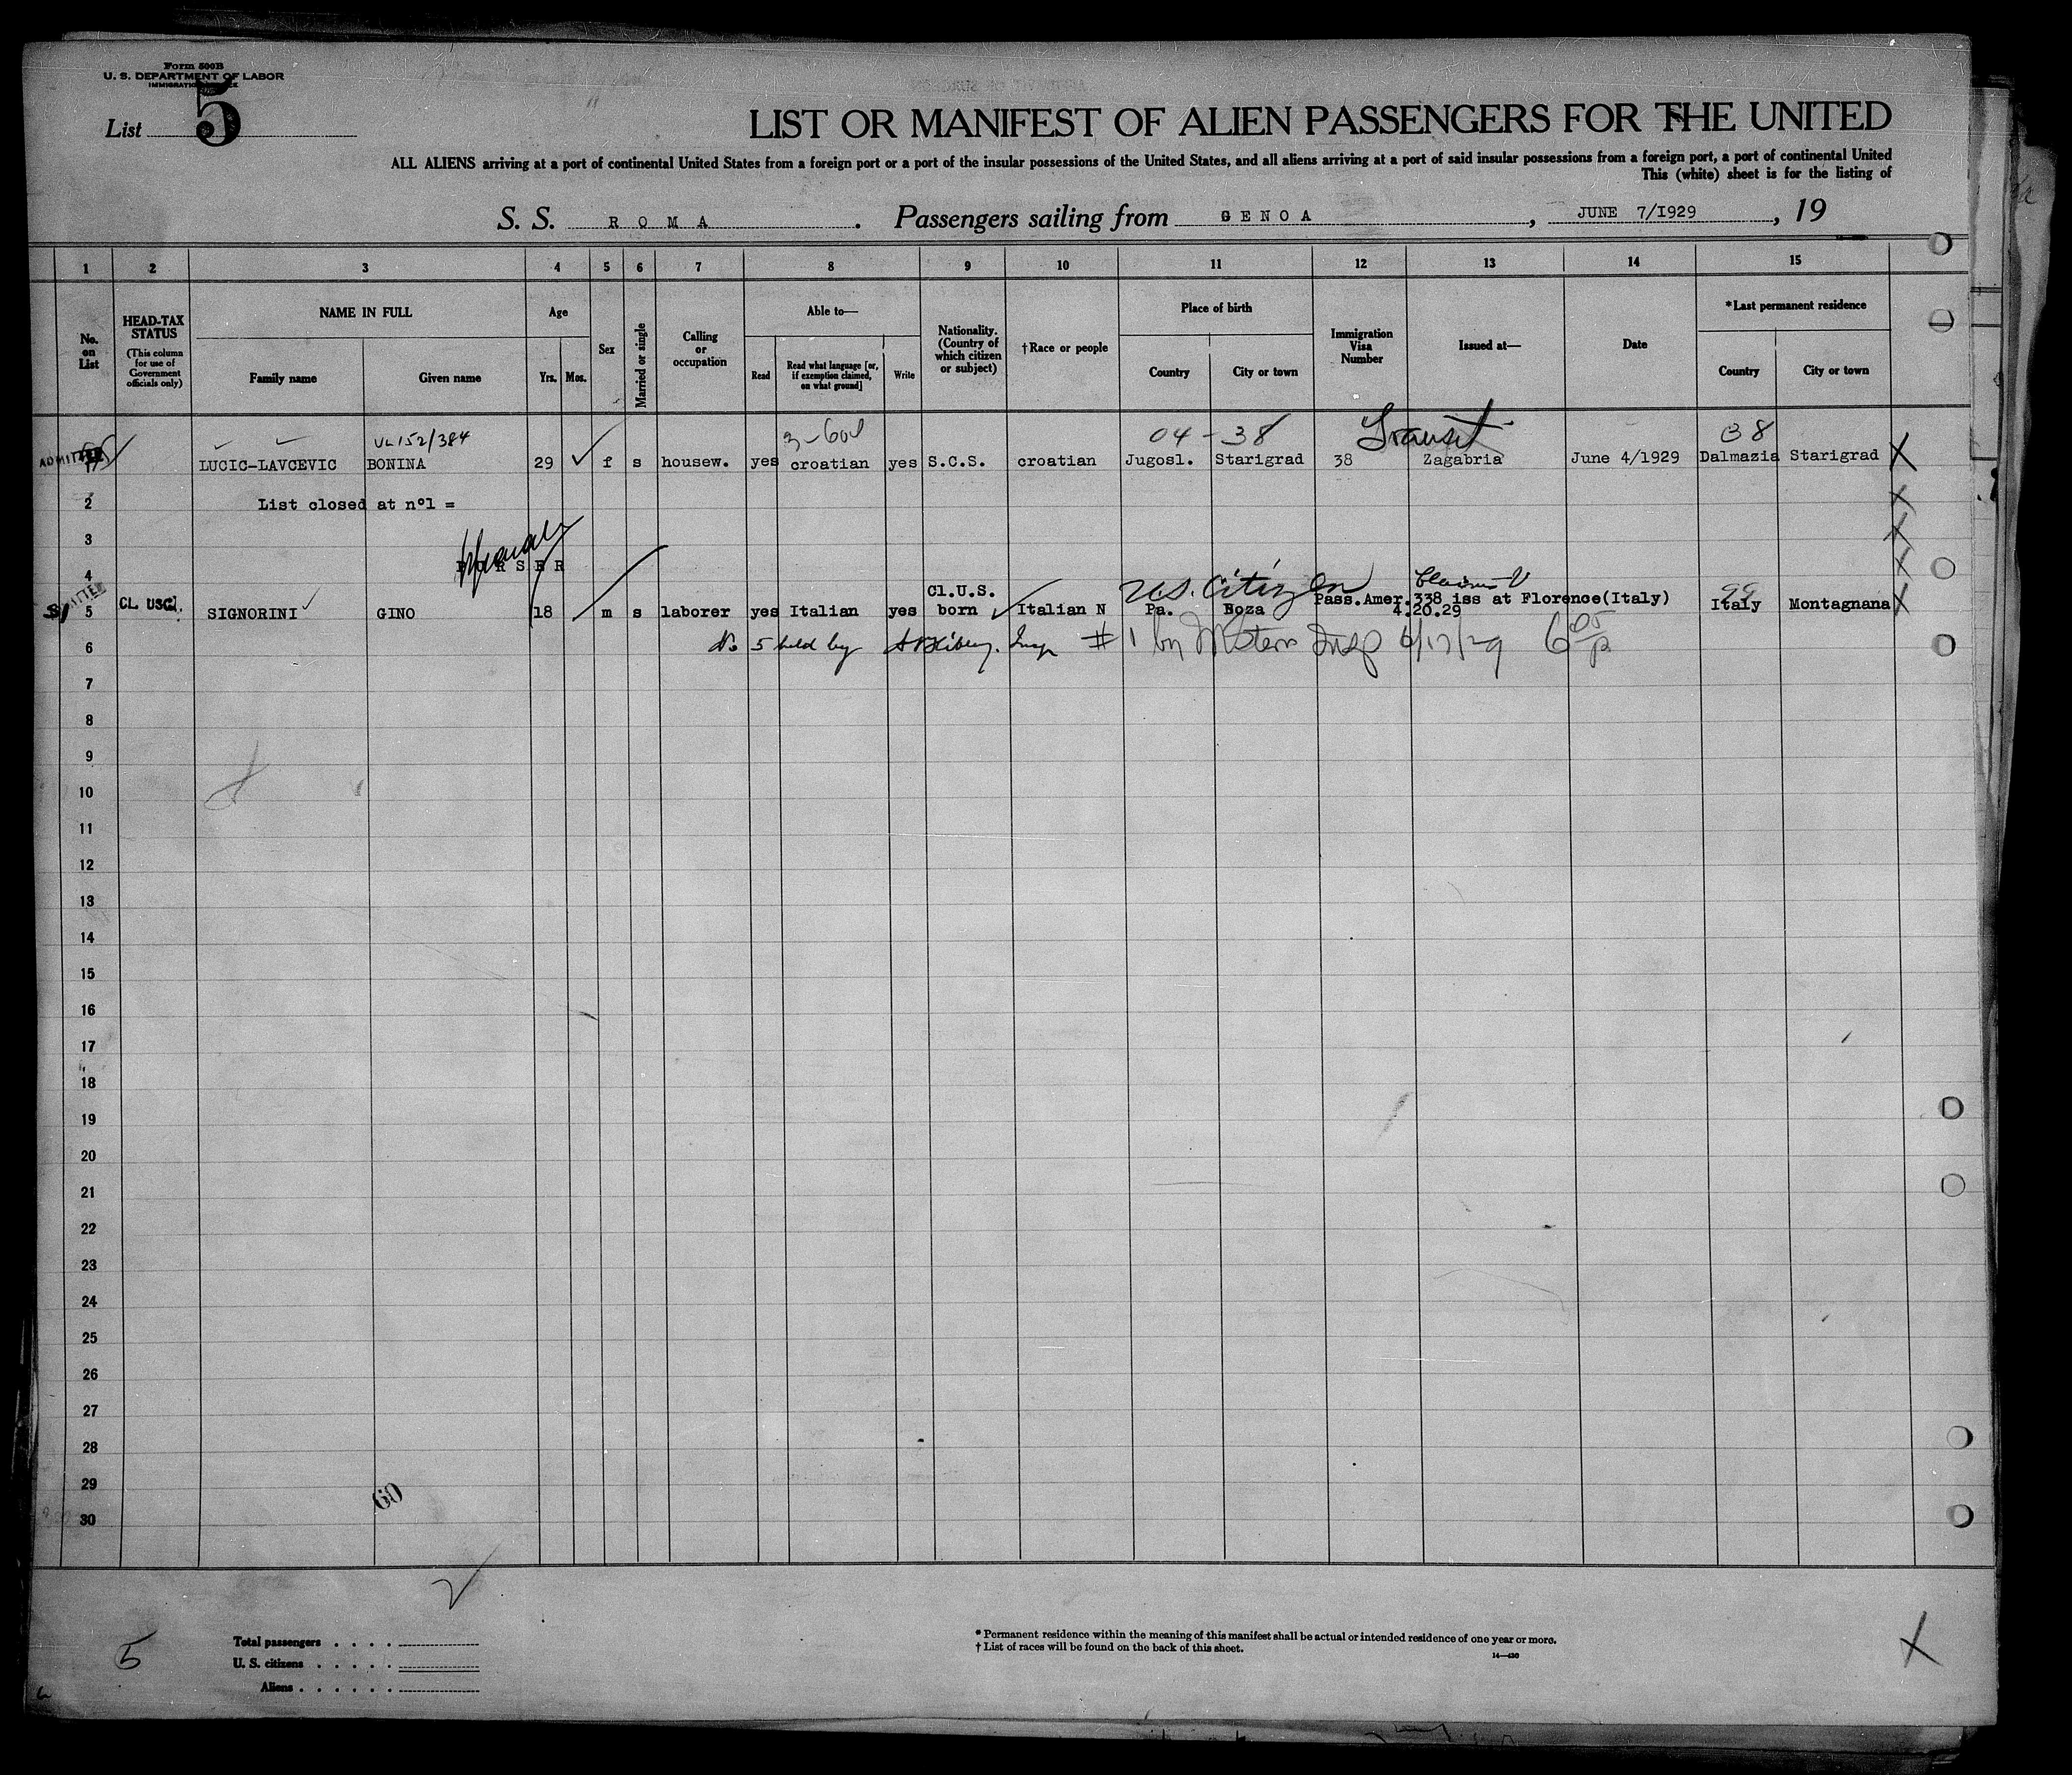 Form 500B
U. S. DEPARTMENT OF LABOR
IMMIGRATION
List 5
LIST OR MANIFEST OF ALIEN PASSENGERS FOR THE UNITED
ALL ALIENS arriving at a port of continental United States from a foreign port or a port of the insular possessions of the United States, and all aliens arriving at a port of said insular possessions from a foreign port, a port of continental United
This (white) sheet is for the listing of
S. S. ROMA. Passengers sailing from GENOA, JUNE 7/1929, 19
1 2 3 4 5 6 7 8 9 10 11 12 13 14 15
No. on List
HEAD-TAX STATUS (This column for use of Government officials only)
NAME IN FULL
Family name Given name
Age
Yrs. Mos.
Sex
Married or single
Calling or occupation
Able to—
Read Read what language [or, if exemption claimed, on what ground] Write
Nationality. (Country of which citizen or subject)
†Race or people
Place of birth
Country City or town
Immigration Visa Number
Issued at—
Date
*Last permanent residence
Country City or town
VL 152/384 04 - 38 Transit 38
ADMITTED LUCIC-LAVCEVIC BONINA 29 f s housew. yes croatian yes S.C.S. croatian Jugosl. Starigrad 38 Zagabria June 4/1929 Dalmazia Starigrad X
2 List closed at n°1 = X
3 X
4 PURSER X
U.S. Citizen 99
5 CL. USC. SIGNORINI GINO 18 m s laborer yes Italian yes Cl.U.S. born Italian N Pa. Boza Pass.Amer.338 iss at Florence(Italy) 4.20.29 Italy Montagnana X
6 No 5 held by Insp #1 by Insp 6/17/29 6 05 p
7
8
9
10
11
12
13
14
15
16
17
18
19
20
21
22
23
24
25
26
27
28
29
60
30
5
Total passengers
U. S. citizens
Aliens
* Permanent residence within the meaning of this manifest shall be actual or intended residence of one year or more.
† List of races will be found on the back of this sheet.
14—430
X